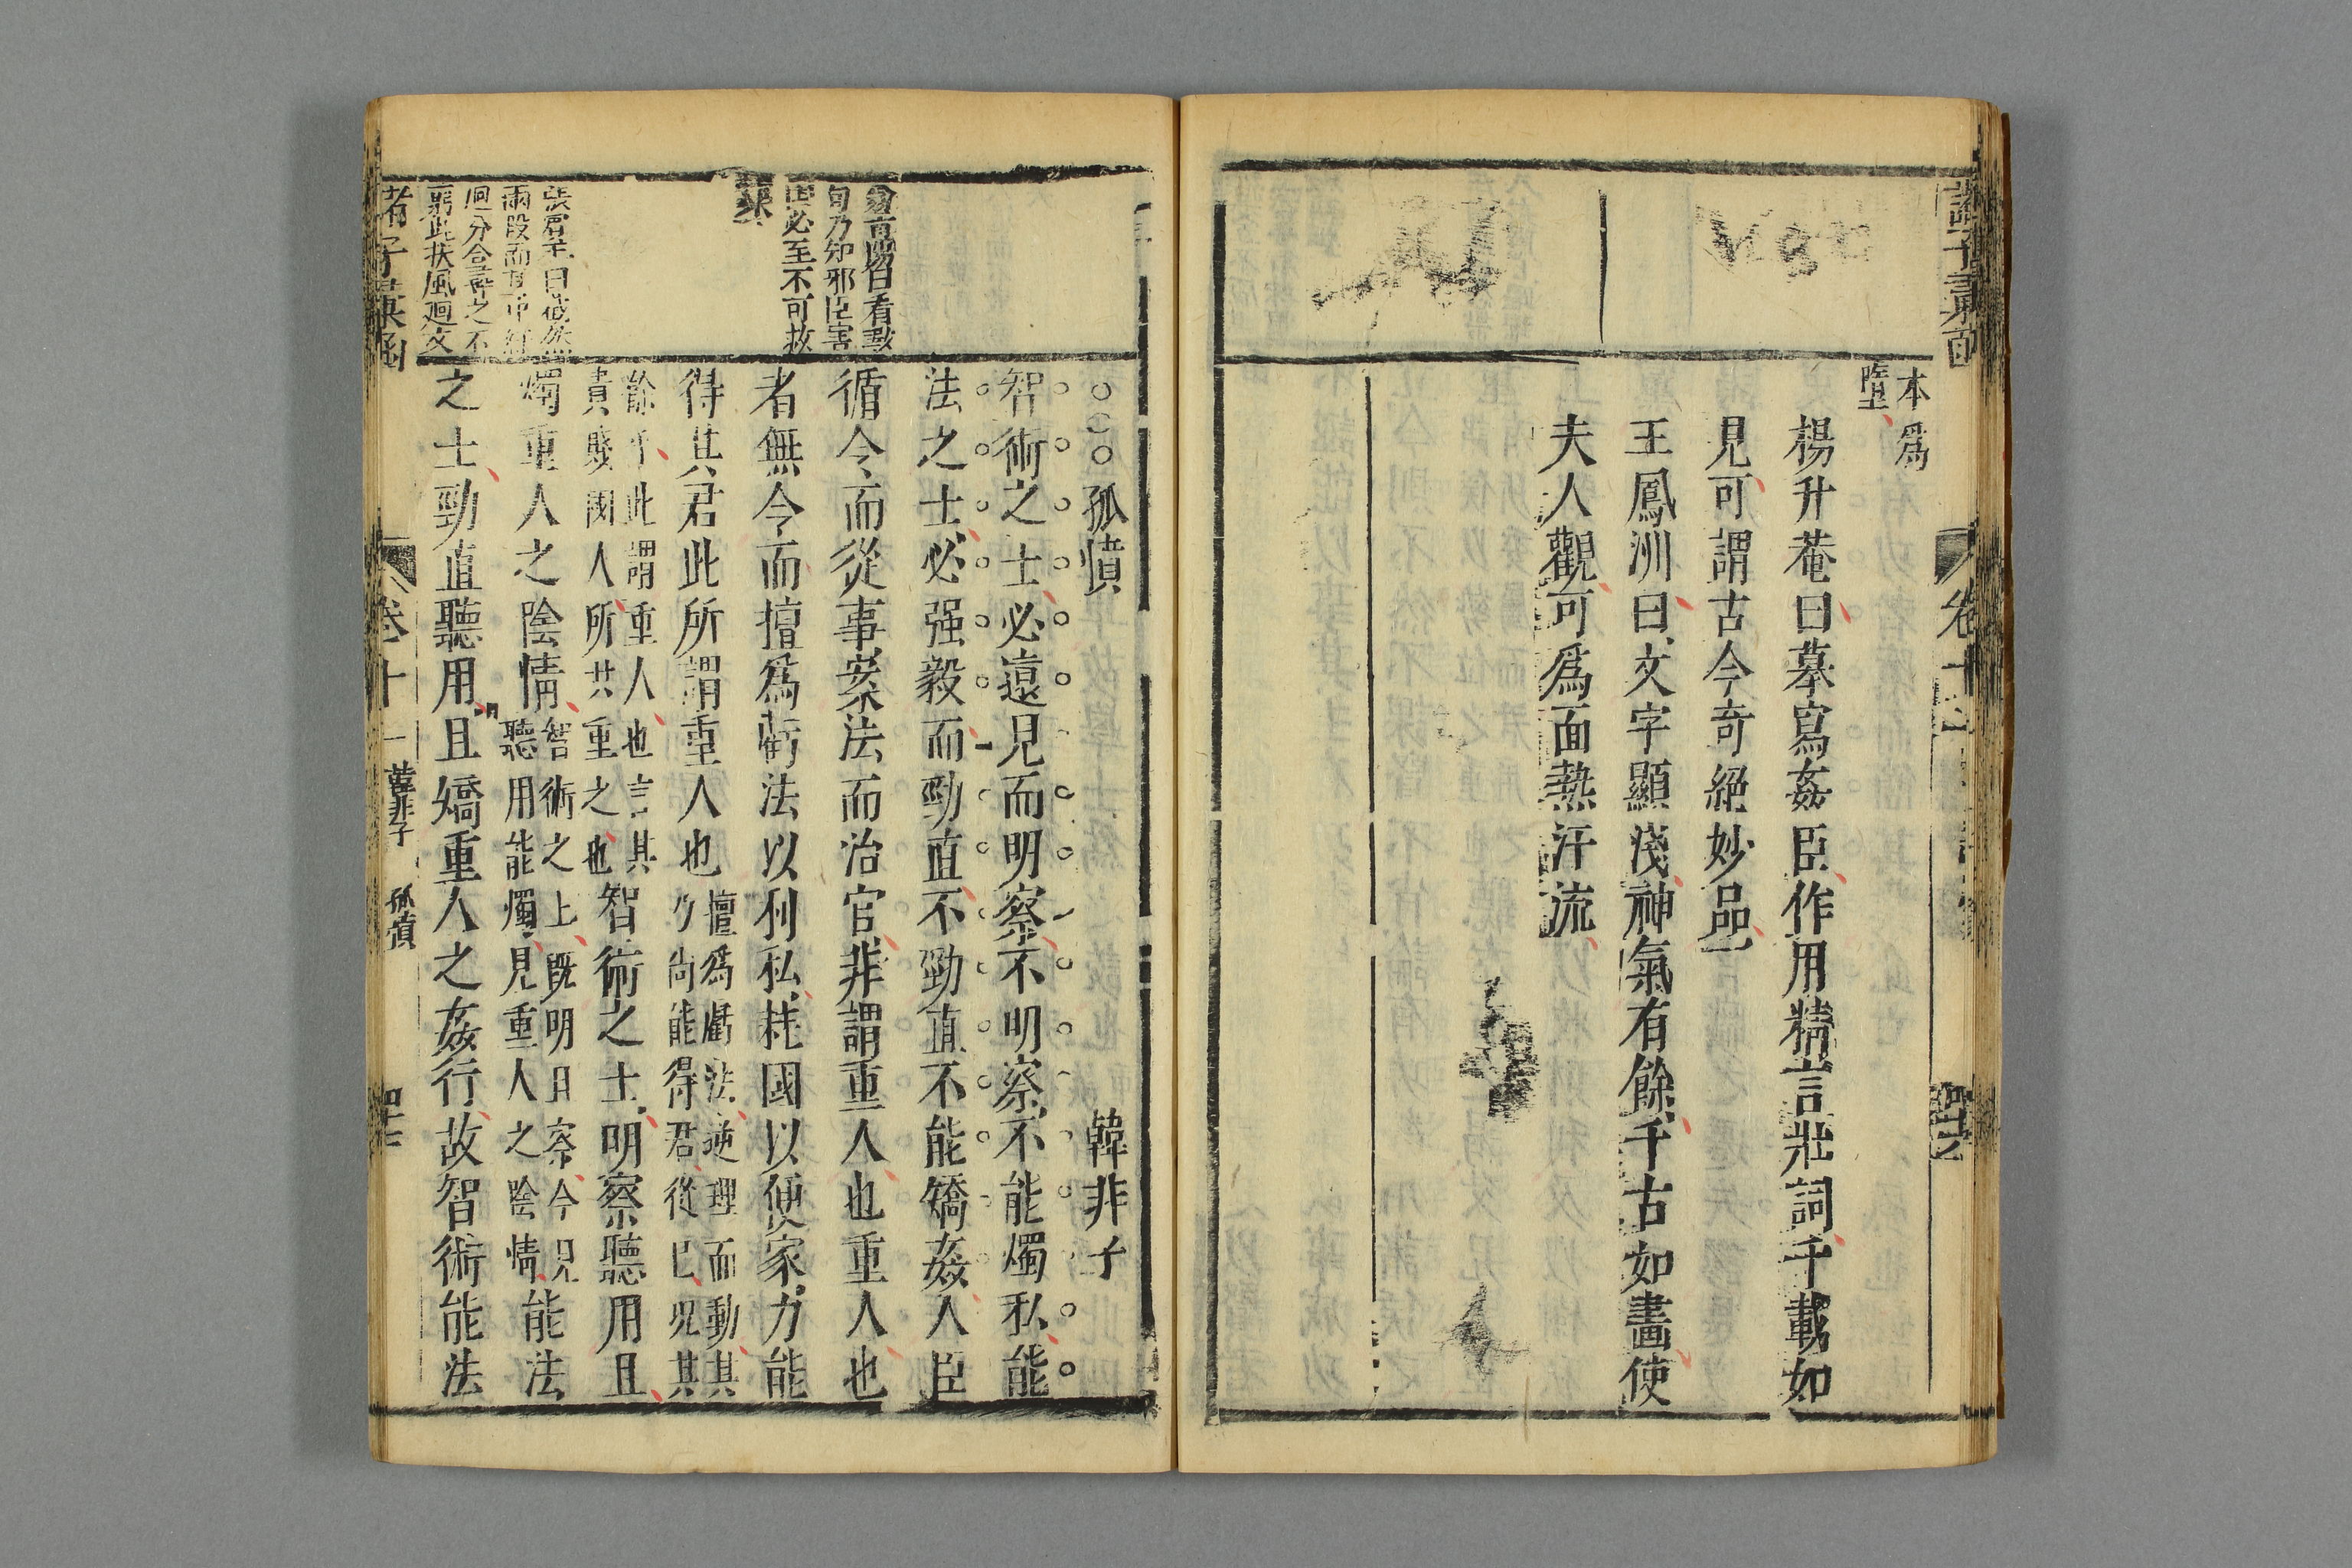 諸子彙函
卷十一
本爲
墮
楊升菴曰摹寫姦臣作用精言壯詞千載如
見可謂古今奇絕妙品
王鳳洲曰文字顯淺神氣有餘千古如畫使
夫人觀可爲面熱汗流
曰看數
句乃知邪臣害
國必至不可救
藥
張賓王曰截然
兩段而
迴分合尋之不
窮此扶風迴文
孤憤
韓非子
智術之士必遠見而明察不明察不能燭私能
法之士必强毅而勁直不勁直不能矯姦人臣
循令而從事案法而治官非謂重人也重人也
者無令而擅爲虧法以利私耗國以便家力能
得其君此所謂重人也
擅爲虧法逆理而動其
力尚能得君從已况其
餘乎此謂重人也言其
貴賤國人所共重之也
智術之士明察聽用且
燭重人之陰情
智術之上既明且察今見
聽用能燭見重人之陰情
能法
之士勁直聽用且矯重人之姦行故智術能法
諸子彙函
卷十一
韓非子
孤憤